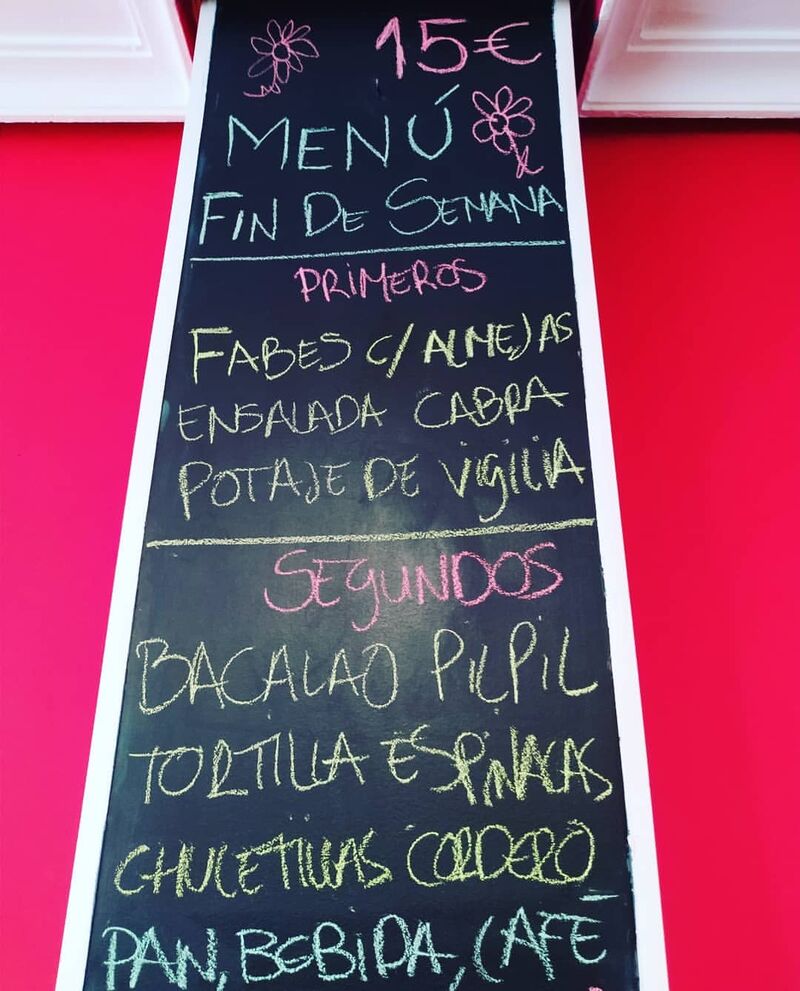 15€
MENÚ
FIN DE SEMANA
PRIMEROS
FABES C/ ALMEJAS
ENSALADA CABRA
POTAJE DE VIGILIA
SEGUNDOS
BACALAO PILPIL
TORTILLA ESPINACAS
CHULETILLAS CORDERO
PAN, BEBIDA, CAFÉ